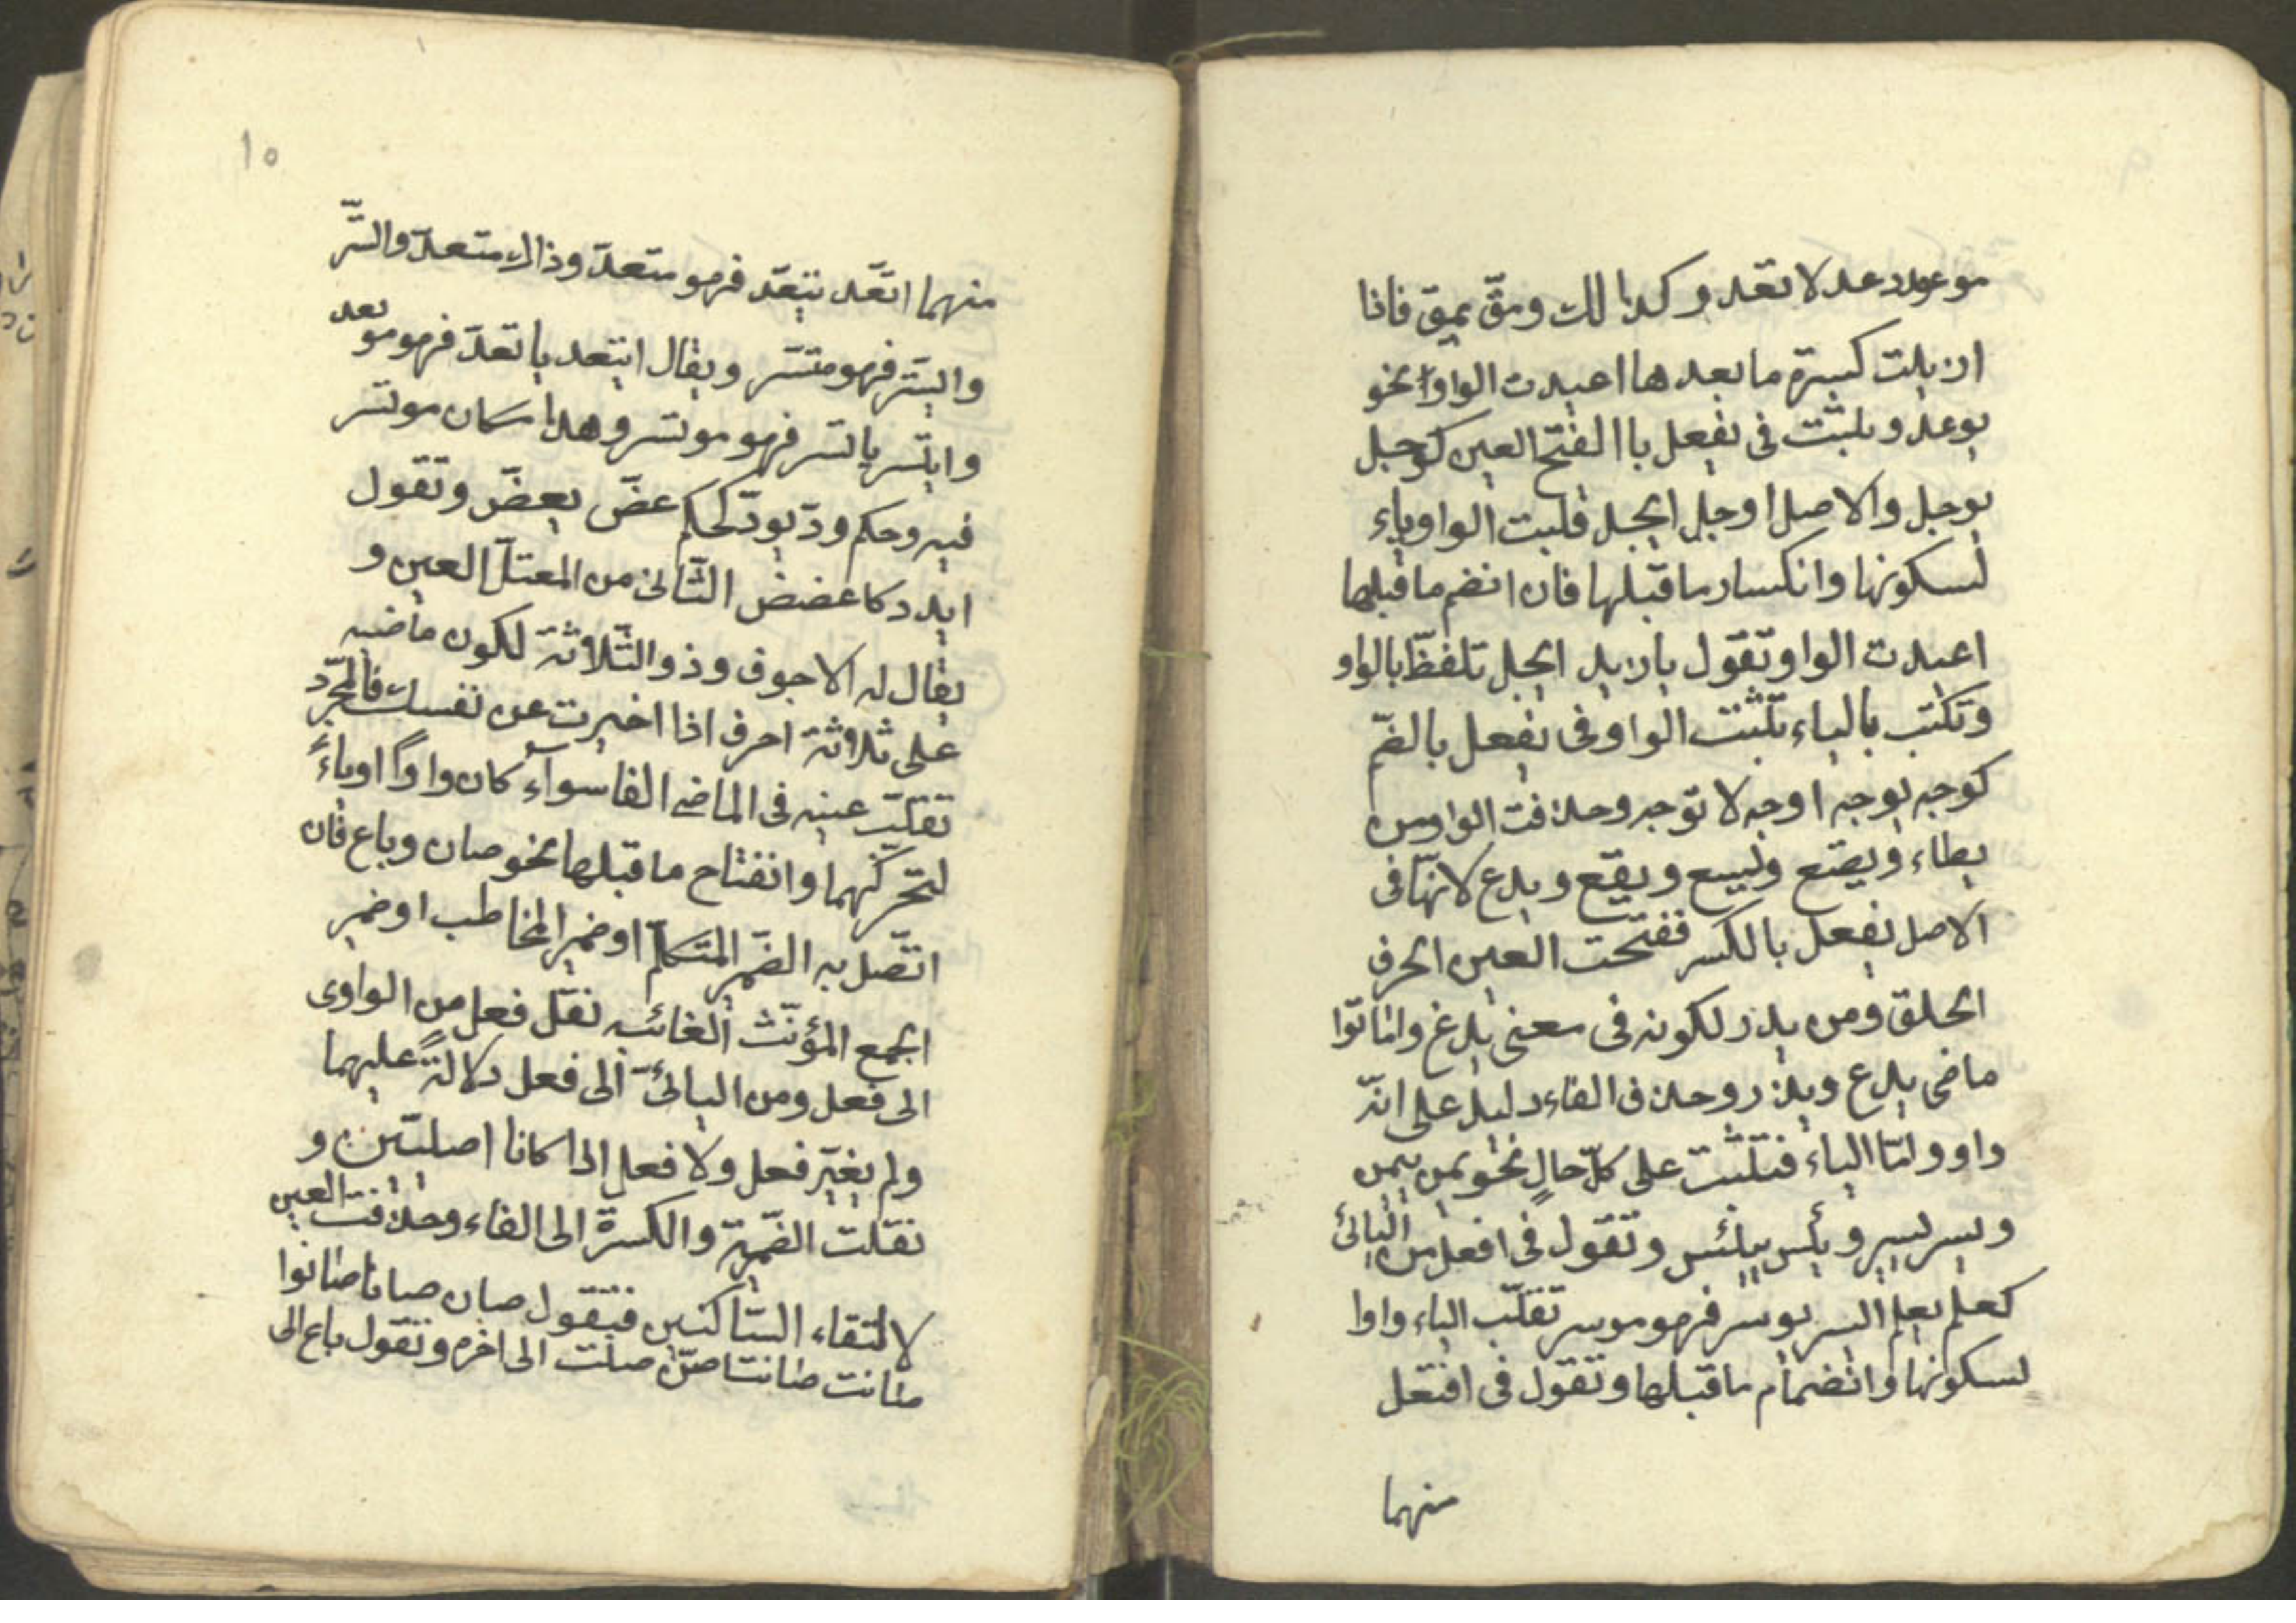 موعود عد لا تعد وكذالك ومق يمق فاذا
ازيلت كسرة ما بعدها اعيدت الواو نحو
يوعد ويثبت فى يفعل باالفتح العين كوجل
يوجل والاصل اوجل ايجل قلبت الواو ياء
لسكونها وانكسار ما قبلها فان انضم ما قبلها
اعيدت الواو وتقول يا زيد ايجل تلفظ بالواو
وتكتب بالياء تثبت الواو وفى يفعل بالضم
كوجه يوجه اوجه لا توجه وحذفت الواو من
يطاء ويضع ويسع ويقع ويدع لانها فى
الاصل يفعل بالكسر ففتحت العين الحرف
الحلق ومن يذر لكونه فى معنى يدع واماتوا
ماضى يدع ويذر وحذف الفاء دليل على انه
واو وامّا الياء فتثبت على كلّ حالٍ نحو يمن ييمن
ويسر ييسر ويئس ييئس وتقول فى افعل من اليائى
كعلم يعلم ايسر يوسر فهو موسر تقلب الياء واوا
لسكونها وانضمام ما قبلها وتقول فى افتعل
منهما
١٥
منهما اتّعد يتّعد فهو متعد وذاك متعد واتّسر
ويتسر فهو متسر ويقال ايتعد ياتعد فهو موتعد
وايتسر ياتسر فهو موتسر وهذا مكان موتسر
فيه وحكم ودّ يودّ كحكم عضّ يعضّ وتقول
ايدد كاعضض الثّانى من المعتلّ العين و
يقال له الاجوف وذو الثّلاثة لكون ماضيه
على ثلاثة احرف اذا اخبرت عن نفسك فالمجرّد
تقلب عينه فى الماضى الفا سوآء كان واوًا او ياءً
لتحركهما وانفتاح ما قبلها نحو صان وباع فان
اتّصل به الضّمير المتكلّم او ضمير المخاطب او ضمير
الجمع المؤنّث الغائبه نقل فعل من الواوى
الى فعل ومن اليائىّ الى فعل دلالةً عليهما
ولم يغيّر فعل ولا فعل اذا كانا اصليّين و
نقلت الضّمة والكسرة الى الفاء وحذفت العين
لالتقاء السّاكنين فتقول صان صانا صانوا
صانت صانتا صنّ صنت الى اخره وتقول باع الى